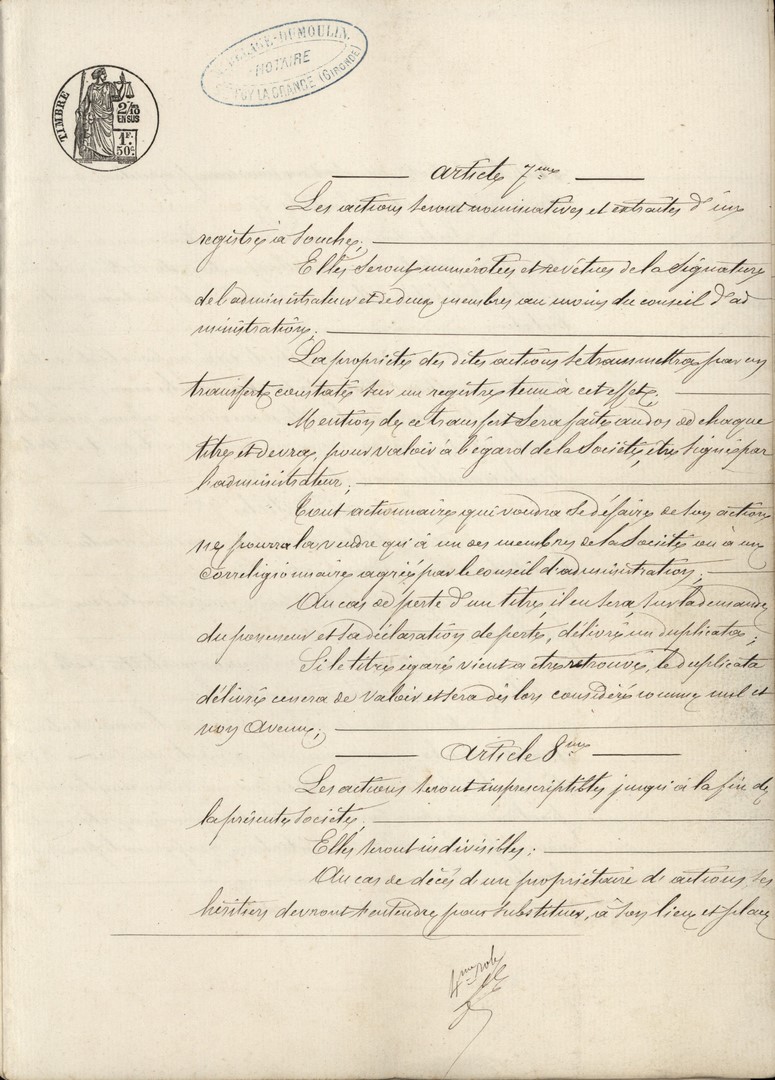 DUMOULIN
NOTAIRE
LA GRANDE (GIRONDE)
TIMBRE
2/10
EN SUS
1F.
50c.
article 7me
Les actions seront nominatives et extraites d'un
registre à souche;
Elles seront numérotées et revêtues de la signature
de l'administrateur et de deux membres au moins du conseil d'ad
ministration.
La propriété des dites actions se transmettra par un
transfert constaté sur un registre tenu à cet effet;
Mention de ce transfert sera faite au dos de chaque
titre et devra, pour valoir à l'égard de la Société, être signée par
l'administrateur;
Tout actionnaire qui voudra se défaire de son action
ne pourra la vendre qu'à un des membres de la Société ou à un
Correligionnaire agréé par le conseil d'administration;
Au cas de perte d'un titre, il en sera, sur la demande
du possesseur et sa déclaration de perte, délivré un duplicata;
Si le titre égaré vient a être retrouvé, le duplicata
délivré cessera de valoir et sera dès lors considéré comme nul et
non avenu;
article 8me
Les actions seront imprescriptibles jusqu'à la fin de
la présente société.
Elles seront indivisibles;
Au cas de décès d'un propriétaire de actions, ses
héritiers devront s'entendre pour substituer, à son lieu et place
4me role